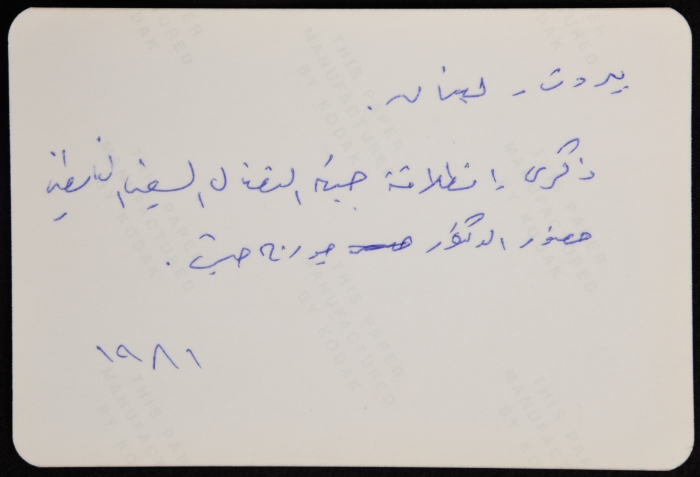 بيروت - لبنان.
ذكرى انطلاقة جبهة النضال الشعبي الفلسطيني
حضور الدكتور جورج حبش.
١٩٨١
THIS PAPER
MANUFACTURED
BY KODAK